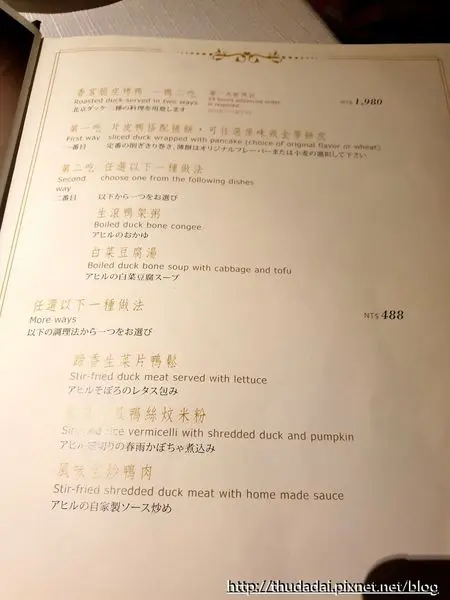 香宮脆皮烤鴨 一鴨二吃
Roasted duck served in two ways
24 hours advanced order
NT$ 1,980
第一吃 片皮鴨搭配捲餅，可任選原味或全麥餅皮
First way sliced duck wrapped with pancake (choice of original flavor or wheat)
一番目 定番の削ぎきり巻き、薄餅はオリジナルフレーバーまたは小麦の選択して下さい
第二吃 任選以下一種做法
Second choose one from the following dishes
way
二番目 以下から一つをお選び
生滾鴨架粥
Boiled duck bone congee
アヒルのおかゆ
白菜豆腐湯
Boiled duck bone soup with cabbage and tofu
アヒルの白菜豆腐スープ
任選以下一種做法
NT$ 488
More ways
以下の調理法から一つをお選び
生菜片鴨鬆
Stir-fried duck meat served with lettuce
アヒルそぼろのレタス包み
鴨絲炆米粉
rice vermicelli with shredded duck and pumpkin
春雨かぼちゃ煮込み
風味 炒鴨肉
Stir-fried shredded duck meat with home made sauce
アヒルの自家製ソース炒め
http://thudadai.pixnet.net/blog